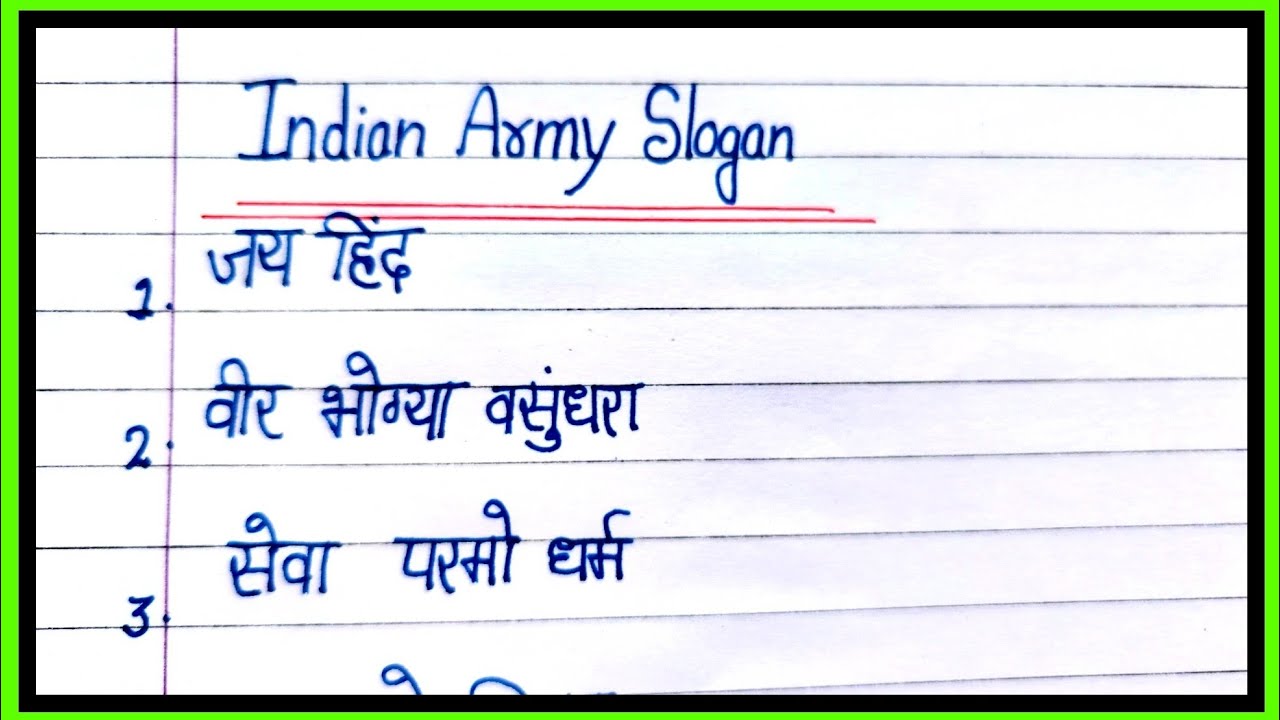 Indian Army Slogan
1. जय हिंद
2. वीर भोग्या वसुंधरा
3. सेवा परमो धर्म